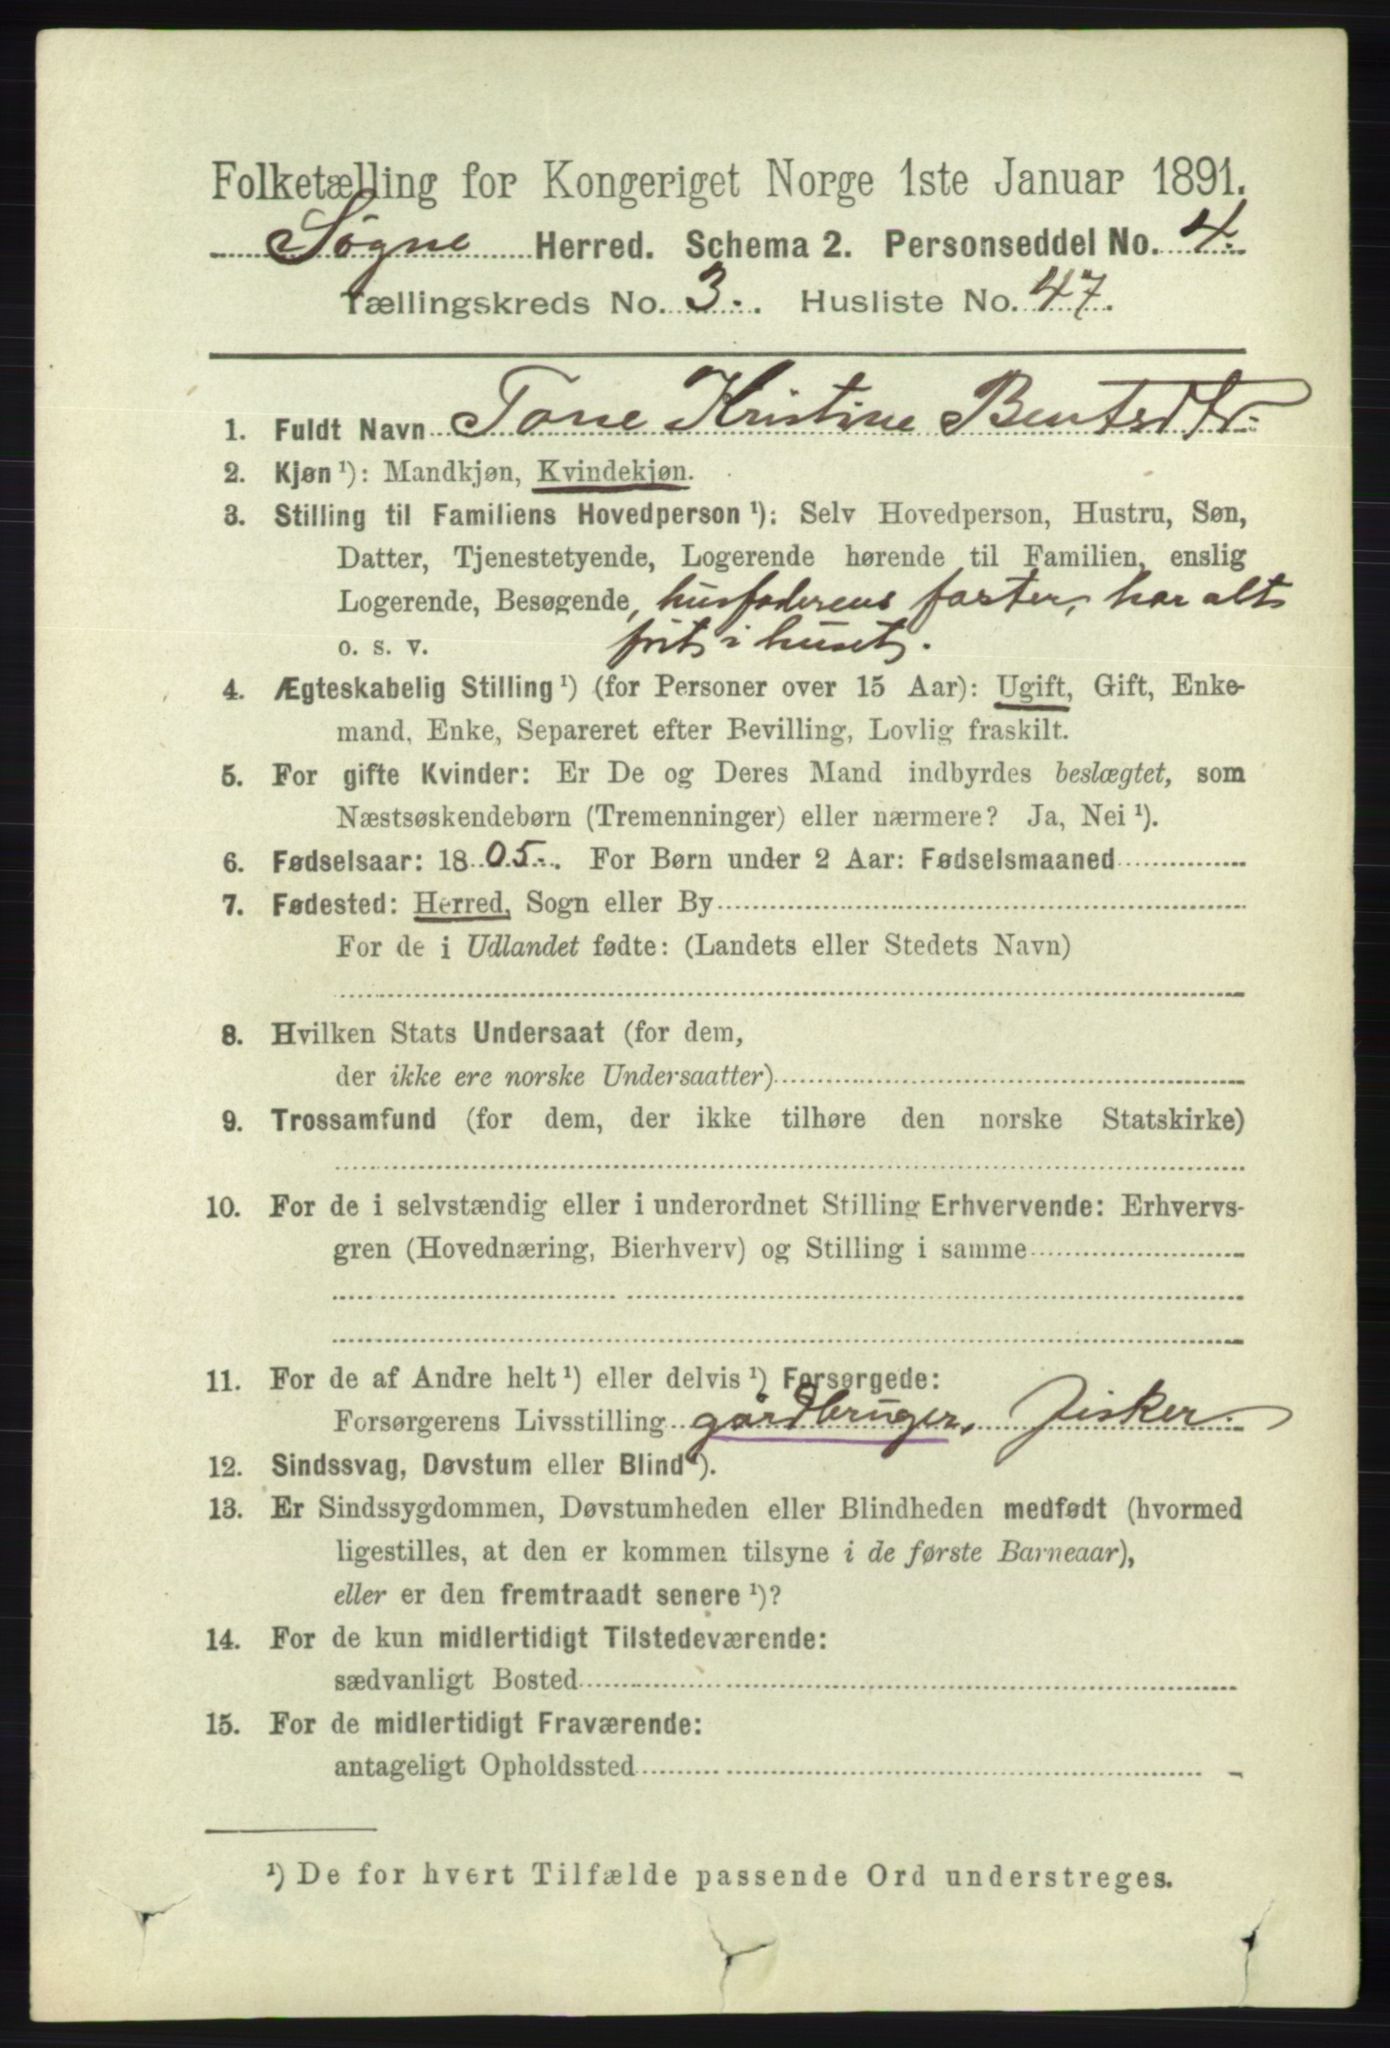 Folketælling for Kongeriget Norge 1ste Januar 1891.
Søgne Herred. Schema 2. Personseddel No. 4.
Tællingskreds No. 3. Husliste No. 47.
1. Fuldt Navn Tone Kristine Bentsdtr.
2. Kjøn ¹): Mandkjøn, Kvindekjøn.
3. Stilling til Familiens Hovedperson ¹): Selv Hovedperson, Hustru, Søn,
Datter, Tjenestetyende, Logerende hørende til Familien, enslig
Logerende, Besøgende, husfaderens faster, har alt
o. s. v. frit i huset.
4. Ægteskabelig Stilling ¹) (for Personer over 15 Aar): Ugift, Gift, Enke-
mand, Enke, Separeret efter Bevilling, Lovlig fraskilt.
5. For gifte Kvinder: Er De og Deres Mand indbyrdes beslægtet, som
Næstsøskendebørn (Tremenninger) eller nærmere? Ja, Nei ¹).
6. Fødselsaar: 1805. For Børn under 2 Aar: Fødselsmaaned
7. Fødested: Herred, Sogn eller By
For de i Udlandet fødte: (Landets eller Stedets Navn)
8. Hvilken Stats Undersaat (for dem,
der ikke ere norske Undersaatter)
9. Trossamfund (for dem, der ikke tilhøre den norske Statskirke)
10. For de i selvstændig eller i underordnet Stilling Erhvervende: Erhvervs-
gren (Hovednæring, Bierhverv) og Stilling i samme
11. For de af Andre helt ¹) eller delvis ¹) Forsørgede:
Forsørgerens Livsstilling gårdbruger, fisker.
12. Sindssvag, Døvstum eller Blind ¹).
13. Er Sindssygdommen, Døvstumheden eller Blindheden medfødt (hvormed
ligestilles, at den er kommen tilsyne i de første Barneaar),
eller er den fremtraadt senere ¹)?
14. For de kun midlertidigt Tilstedeværende:
sædvanligt Bosted
15. For de midlertidigt Fraværende:
antageligt Opholdssted
¹) De for hvert Tilfælde passende Ord understreges.